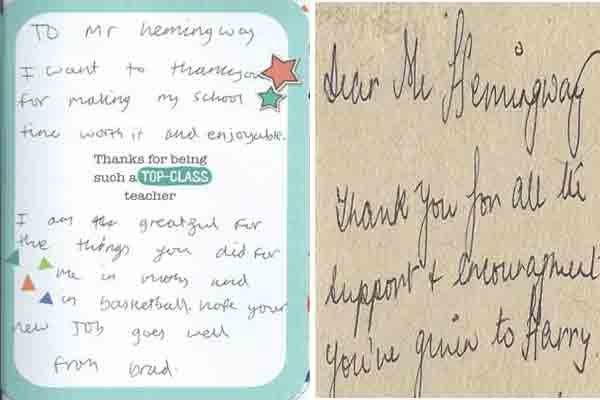 TO Mr hemingway
I want to thankyou
for making my school
time worth it and enjoyable.
Thanks for being
such a TOP-CLASS
teacher
I am the greatful for
the things you did for
me in and
in basketball. hope your
new JOB goes well
from brad.
Dear Mr Hemingway
Thank You for all the
support & encouragment
you've given to Harry.